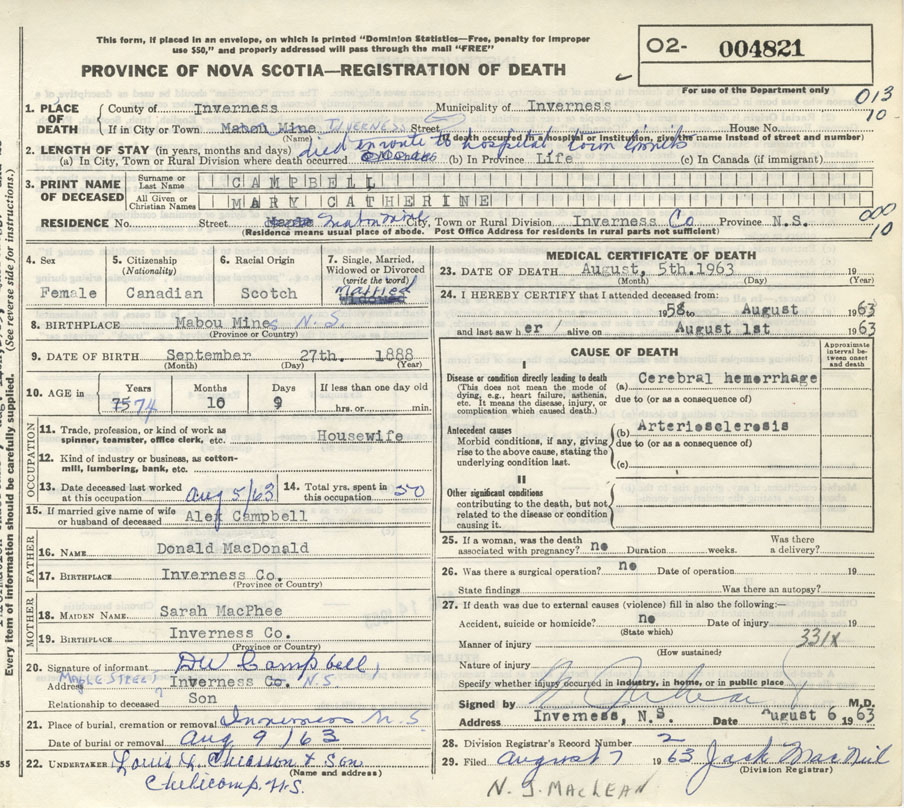 This form, if placed in an envelope, on which is printed "Dominion Statistics—Free, penalty for improper
use $50," and properly addressed will pass through the mail "FREE"
O2- 004821
PROVINCE OF NOVA SCOTIA—REGISTRATION OF DEATH
For use of the Department only
013
10
1. PLACE OF DEATH
County of Inverness Municipality of Inverness
If in City or Town Mabou Mine INVERNESS Street House No.
(Name) (If death occurred in a hospital or institution, give the name instead of street and number)
died enroute to hospital town limits
2. LENGTH OF STAY (in years, months and days)
(a) In City, Town or Rural Division where death occurred (b) In Province Life (c) In Canada (if immigrant)
3. PRINT NAME OF DECEASED
Surname or Last Name CAMPBELL
All Given or Christian Names MARY CATHERINE
RESIDENCE No. Street Mabou Mine City, Town or Rural Division Inverness Co Province N.S.
(Residence means usual place of abode. Post Office Address for residents in rural parts not sufficient)
000
10
4. Sex
Female
5. Citizenship (Nationality)
Canadian
6. Racial Origin
Scotch
7. Single, Married, Widowed or Divorced (write the word)
Married
8. BIRTHPLACE Mabou Mines N.S.
(Province or Country)
9. DATE OF BIRTH September 27th. 1888
(Month) (Day) (Year)
10. AGE in
Years Months Days If less than one day old
75 74 10 9 hrs. or min.
OCCUPATION
11. Trade, profession, or kind of work as spinner, teamster, office clerk, etc. Housewife
12. Kind of industry or business, as cotton-mill, lumbering, bank, etc.
13. Date deceased last worked at this occupation Aug 5/63
14. Total yrs. spent in this occupation 50
15. If married give name of wife or husband of deceased Alex Campbell
FATHER
16. NAME Donald MacDonald
17. BIRTHPLACE Inverness Co.
(Province or Country)
MOTHER
18. MAIDEN NAME Sarah MacPhee
19. BIRTHPLACE Inverness Co.
(Province or Country)
20. Signature of informant DW Campbell
MAPLE STREET
Address Inverness Co. N.S
Relationship to deceased ? Son
21. Place of burial, cremation or removal Inverness N.S
Date of burial or removal Aug 9/63
22. UNDERTAKER Louis L. Chiasson & Son
(Name and address)
Chéticamp N.S.
MEDICAL CERTIFICATE OF DEATH
23. DATE OF DEATH August, 5th.1963 19
(Month) (Day) (Year)
24. I HEREBY CERTIFY that I attended deceased from:
1958 to August 1963
and last saw her alive on August 1st 1963
CAUSE OF DEATH
Approximate interval between onset and death
I
Disease or condition directly leading to death
(This does not mean the mode of dying, e.g., heart failure, asthenia, etc. It means the disease, injury, or complication which caused death.)
(a) Cerebral hemorrhage
due to (or as a consequence of)
Antecedent causes
Morbid conditions, if any, giving rise to the above cause, stating the underlying condition last.
(b) Arteriosclerosis
due to (or as a consequence of)
(c)
II
Other significant conditions
contributing to the death, but not related to the disease or condition causing it.
25. If a woman, was the death associated with pregnancy? no Duration weeks. Was there a delivery?
26. Was there a surgical operation? no Date of operation 19
State findings Was there an autopsy?
27. If death was due to external causes (violence) fill in also the following:—
Accident, suicide or homicide? no Date of injury 19
(State which)
331X
Manner of injury
(How sustained)
Nature of injury
Specify whether injury occurred in industry, in home, or in public place
Signed by M.D.
Address Inverness, N.S. Date August 6 1963
28. Division Registrar's Record Number 2
29. Filed August 7 1963 Jack MacNeil
(Division Registrar)
N. J. MACLEAN
Every item of information should be carefully supplied. (See reverse side for instructions.)
55